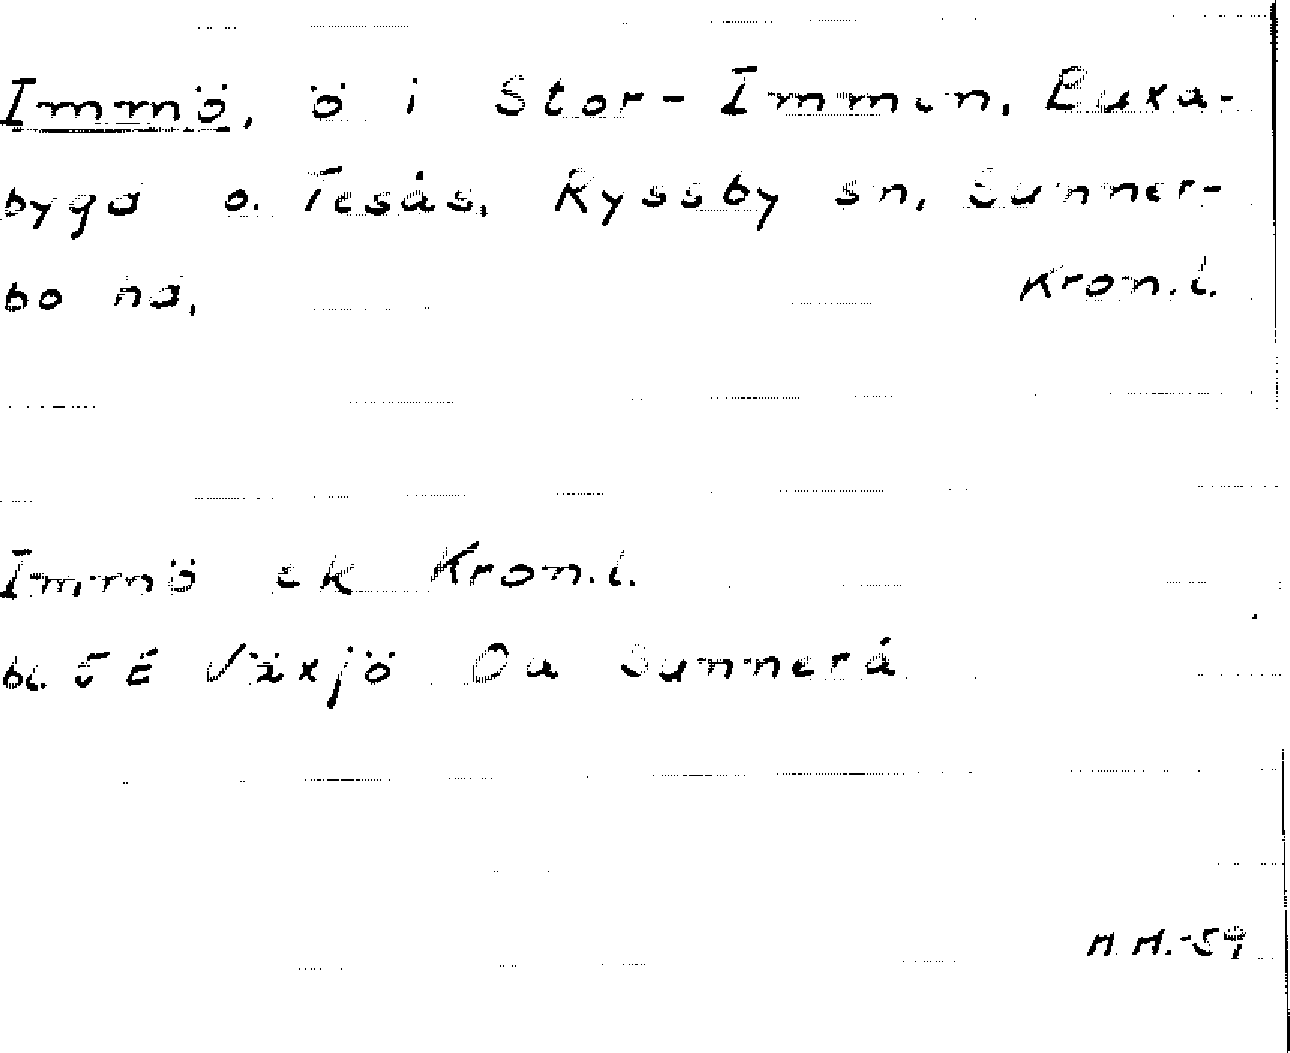 Immö, ö i Stor-Immen, Luxa-
bygd o. Tesås, Ryssby sn, Sunner-
bo hd, Kron.l.
Immö ek Kron.l.
bl. 5 E Växjö Ou Sunnerå
H.H.-59